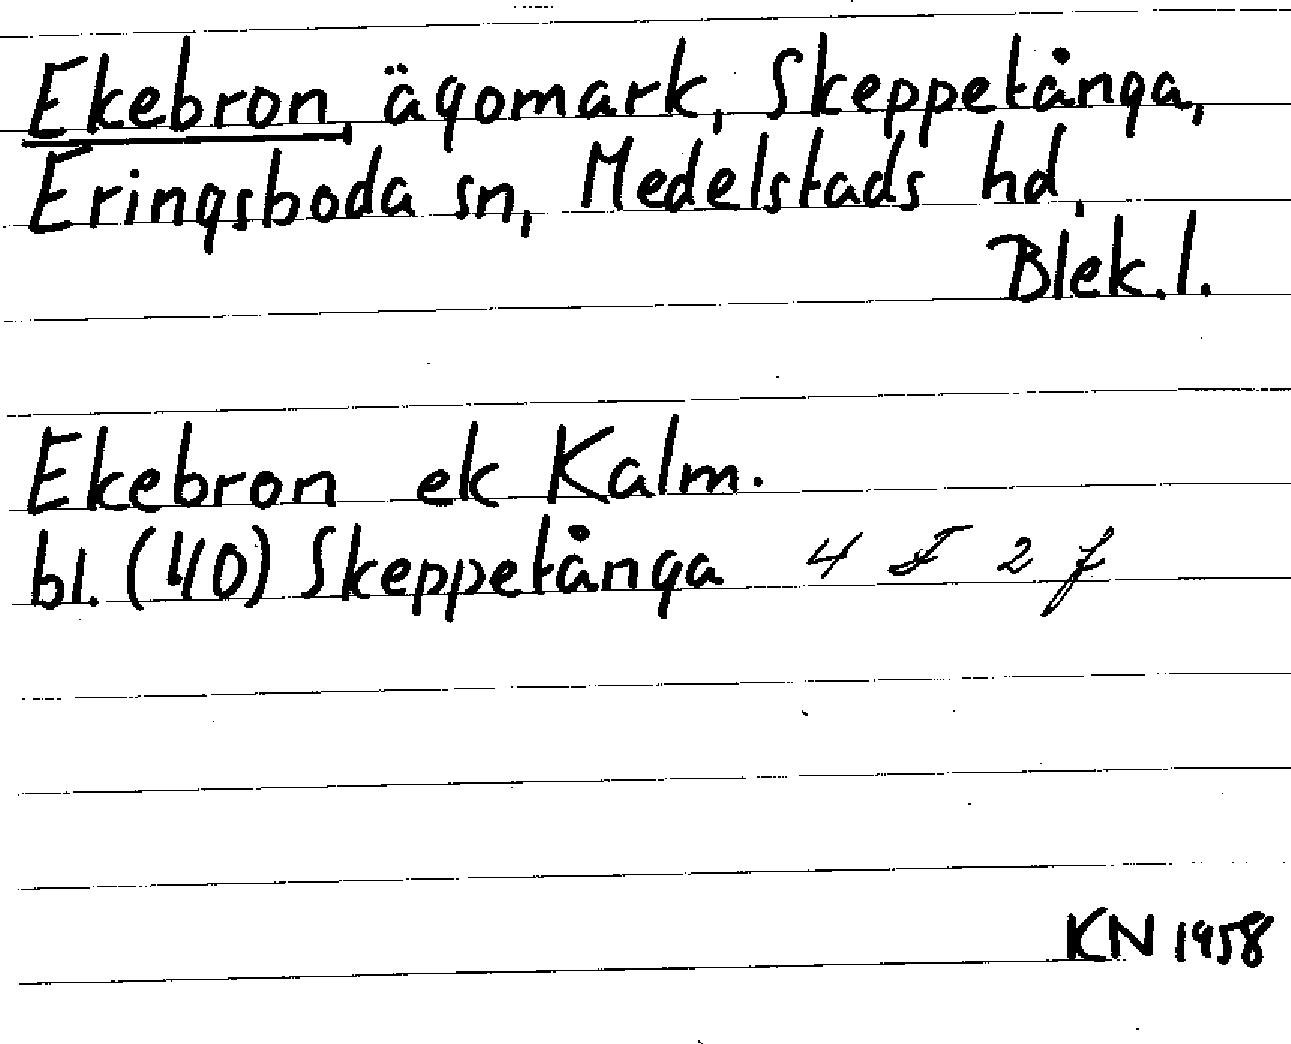 Ekebron, ägomark, Skeppetånga,
Eringsboda sn, Medelstads hd,
Blek.l.
Ekebron ek Kalm.
bl. (40) Skeppetånga 4 I 2 f
KN 1958